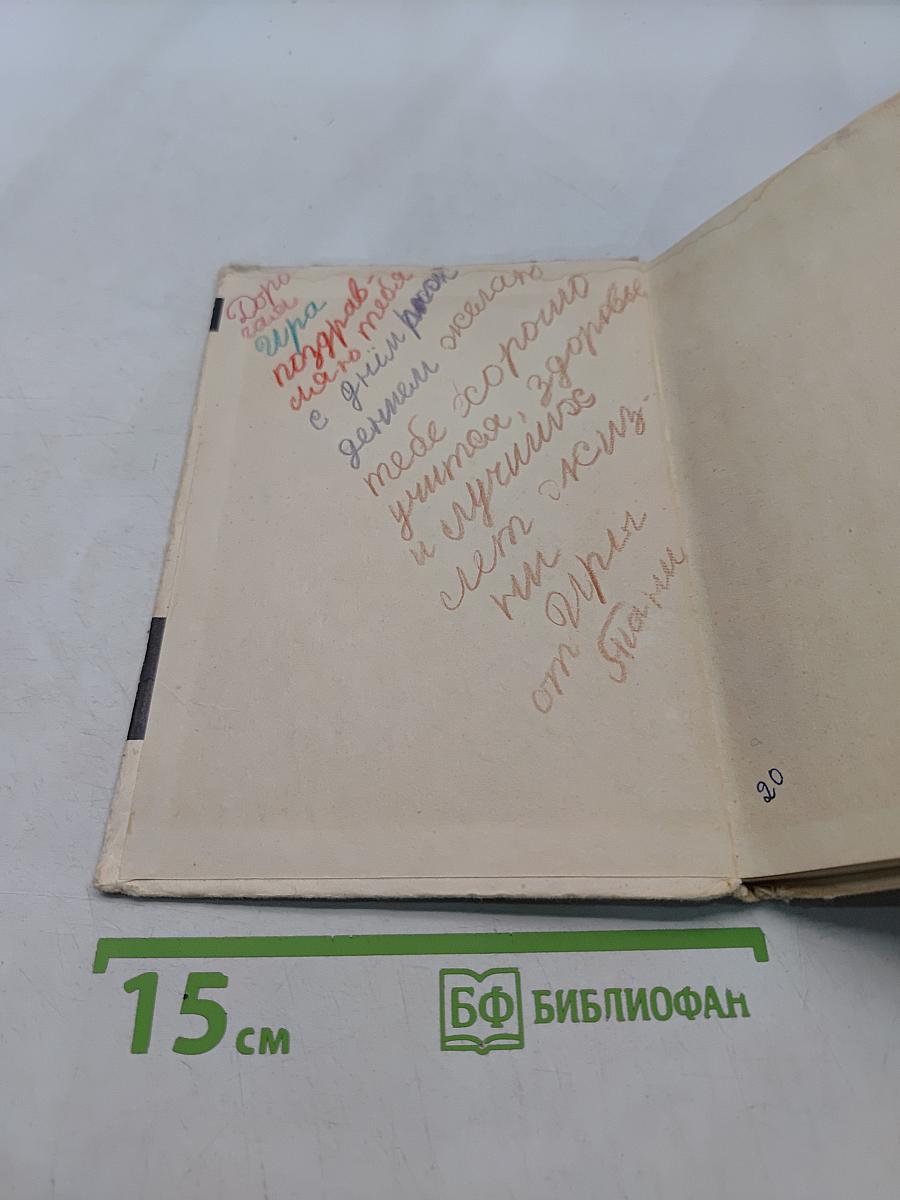 Доро
гая
Ира
поздрав-
ляю тебя
с днём рож
дением желаю
тебе хорошо
учится, здоровье
и лучших
лет жиз-
ни
от Иры
Тани
20
15 см
БФ БИБЛИОФАН